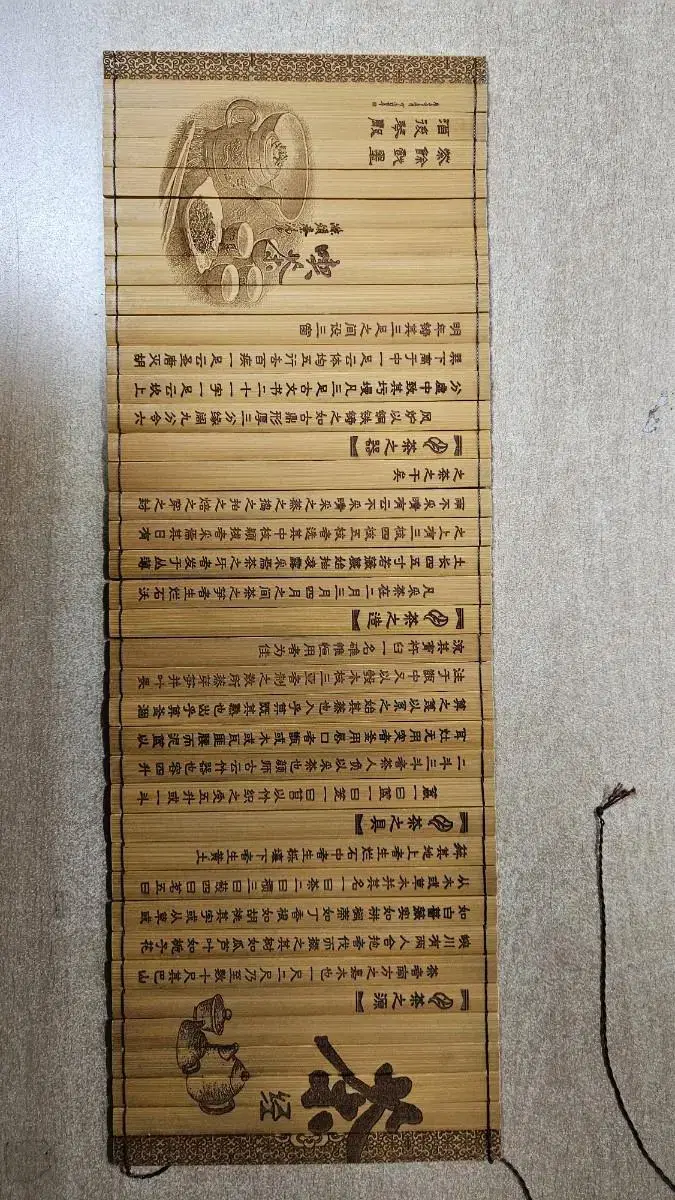 茶
经
茶之源
茶者南方之嘉木也一尺二尺乃至数十尺其巴山
峡川有两人合抱者伐而掇之其树如瓜芦叶如栀子花
如白蔷薇实如栟榈蒂如丁香根如胡桃其字或从草或
从木或草木并其名一曰茶二曰槚三曰蔎四曰茗五曰
荈其地上者生烂石中者生栎壤下者生黄土
茶之具
籝一曰篮一曰笼一曰筥以竹织之受五升或一斗
二斗三斗者茶人负以采茶也颜师古云竹器也容四升
灶无用突者釜用唇口者甑或木或瓦匪腰而泥篮以
箅之篾以系之始其蒸也入乎箅既其熟也出乎箅釜涸
注于甑中又以榖木枝三亚者制之散所蒸芽笋并叶畏
流其膏杵臼一名碓惟恒用者为佳
茶之造
凡采茶在二月三月四月之间茶之笋者生烂石沃
土长四五寸若薇蕨始抽凌露采焉茶之牙者发于丛薄
之上有三枝四枝五枝者选其中枝颖拔者采焉其日有
雨不采晴有云不采晴采之蒸之捣之拍之焙之穿之封
之茶之干矣
茶之器
风炉以铜铁铸之如古鼎形厚三分缘阔九分令六
分虚中致其圬墁凡三足古文书二十一字一足云坎上
巽下离于中一足云体均五行去百疾一足云圣唐灭胡
明年铸其三足之间设三窗
茶
茶余戏墨
酒后琴